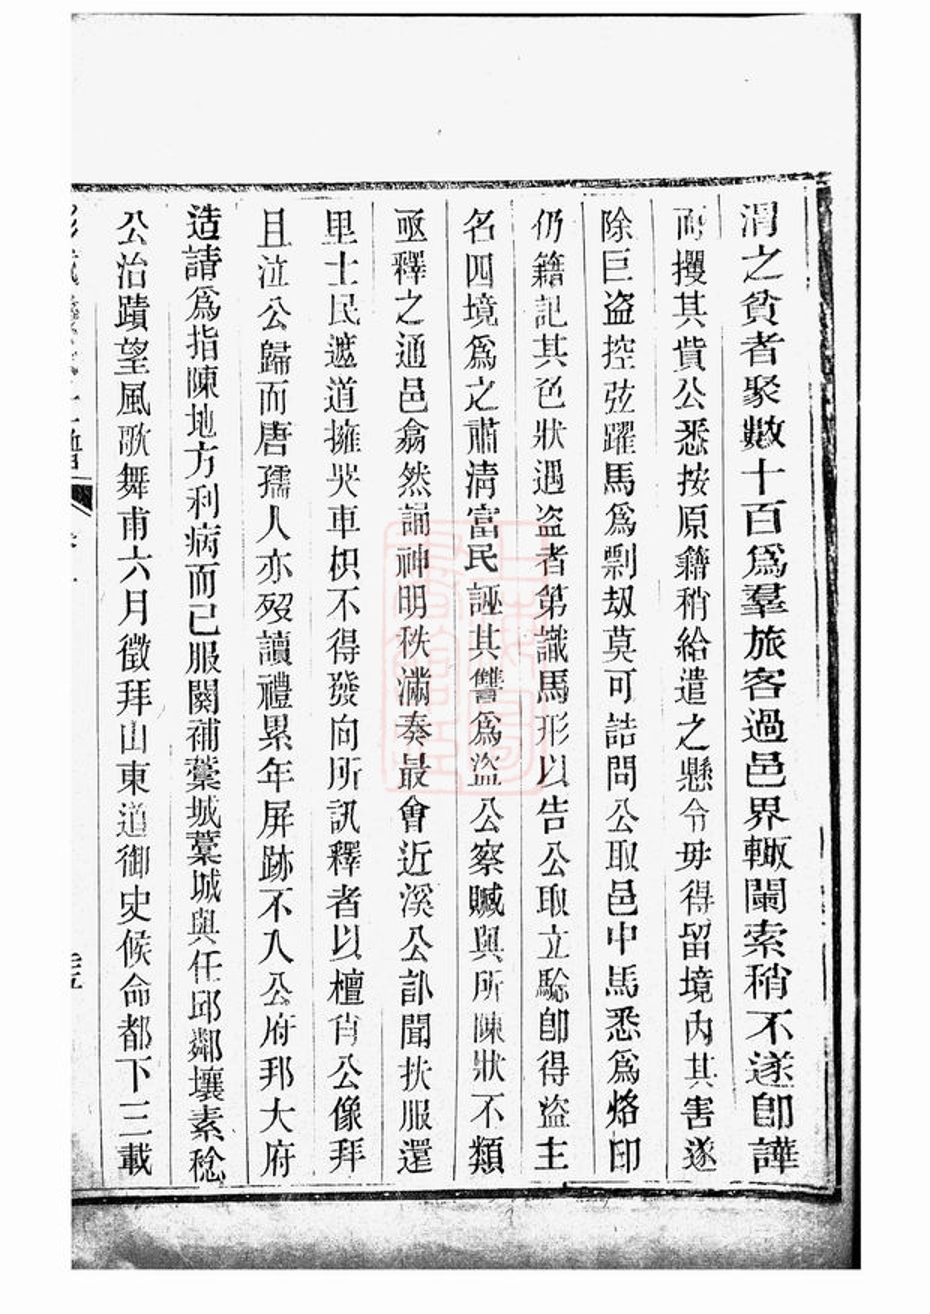 渭之貧者聚數十百爲羣旅客過邑界輙闌索稍不遂卽譁
而攫其貲公悉按原籍稍給遣之懸令毋得留境內其害遂
除巨盗控弦躍馬爲剽刼莫可詰問公取邑中馬悉爲烙印
仍籍記其色狀遇盗者第識馬形以告公取立驗卽得盗主
名四境爲之肅清富民誣其讐爲盜公察贓與所陳狀不類
亟釋之通邑翕然誦神明秩滿奏最會近溪公訃聞扶服還
里士民遮道擁哭車枳不得發向所訊釋者以檀肖公像拜
且泣公歸而唐孺人亦歿讀禮累年屏跡不入公府邦大府
造請爲指陳地方利病而已服闋補藁城藁城與任邱鄰壤素稔
公治蹟望風歌舞甫六月徵拜山東道御史候命都下三載